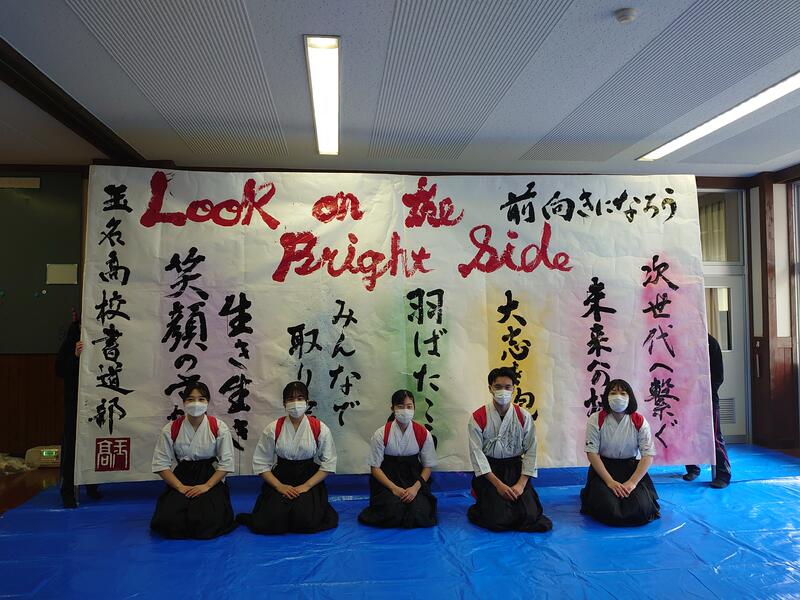 Look on the
Bright Side
前向きになろう
次世代へ繋ぐ
未来への
大志を抱
羽ばたこう
みんなで
取り
生き生き
笑顔の
玉名高校書道部
玉高